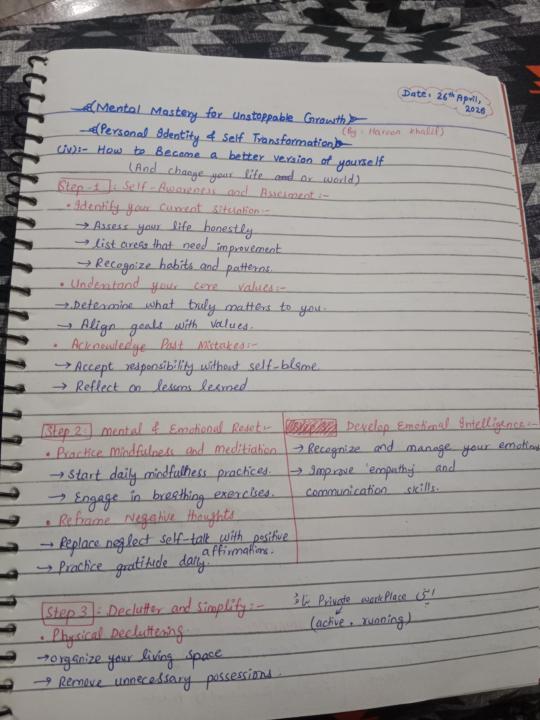 Date: 26th April, 2026
Mental Mastery for Unstoppable Growth
(By: Haroon Khalif)
Personal Identity & Self Transformation
(iv):- How to Become a better version of yourself
(And change your life and or world)
Step-1: Self-Awareness and Assesment:-
• Identify your current situation:-
→ Assess your life honestly
→ list areas that need improvement
→ Recognize habits and patterns.
• Understand your core values:-
→ Determine what truly matters to you.
→ Align goals with values.
• Acknowledge Past Mistakes:-
→ Accept responsibility without self-blame.
→ Reflect on lessons learned
Step 2: Mental & Emotional Reset:-
• Practice Mindfulness and meditiation
→ Start daily mindfulness practices.
→ Engage in breathing exercises.
• Reframe Negative thoughts
→ Replace neglect self-talk with positive
affirmations.
→ Practice gratitude daily.
Develop Emotional Intelligence:-
→ Recognize and manage your emotions
→ Improve empathy and
communication skills.
Step 3: Declutter and Simplify:-
• Physical Decluttering
→ organize your living space
→ Remove unnecessary possessions.
Private workPlace
(active, running)